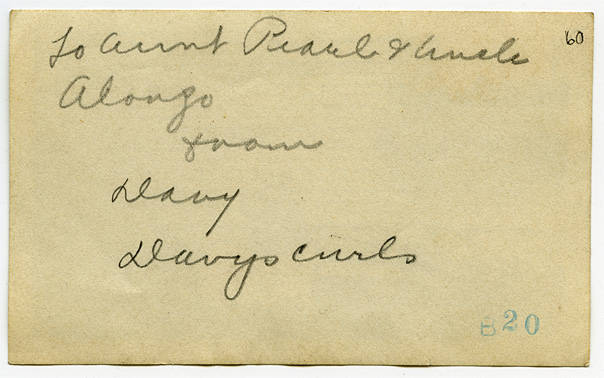 To Aunt Pearl & Uncle
60
Alonzo
from
Davy
Davys curls
B20